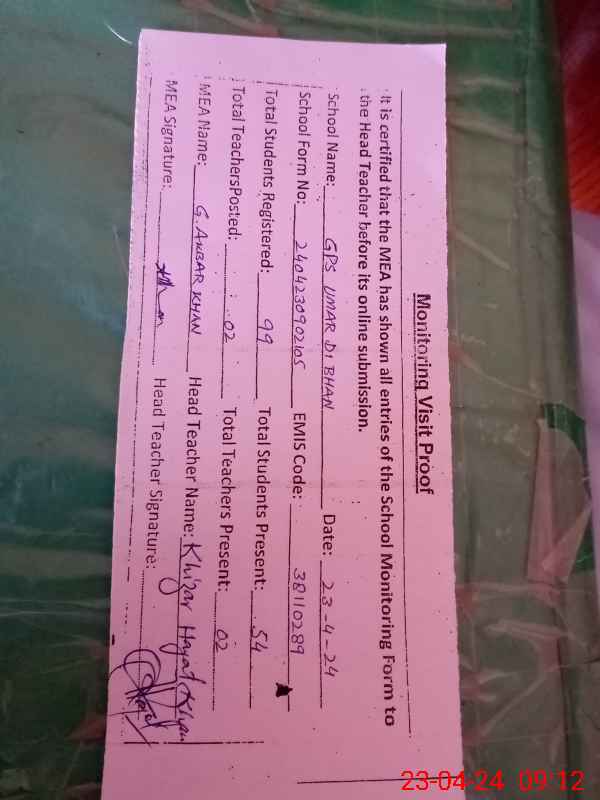 Monitoring Visit Proof
It is certified that the MEA has shown all entries of the School Monitoring Form to
the Head Teacher before its online submission.
School Name: GPS UMAR DI BHAN Date: 23-4-24
School Form No: 2404230902105 EMIS Code: 38110289
Total Students Registered: 99 Total Students Present: 54
Total TeachersPosted: 02 Total Teachers Present: 02
MEA Name: G. AKBAR KHAN Head Teacher Name: Khizar Hayat Khan
MEA Signature: Head Teacher Signature:
23-04-24 09:12